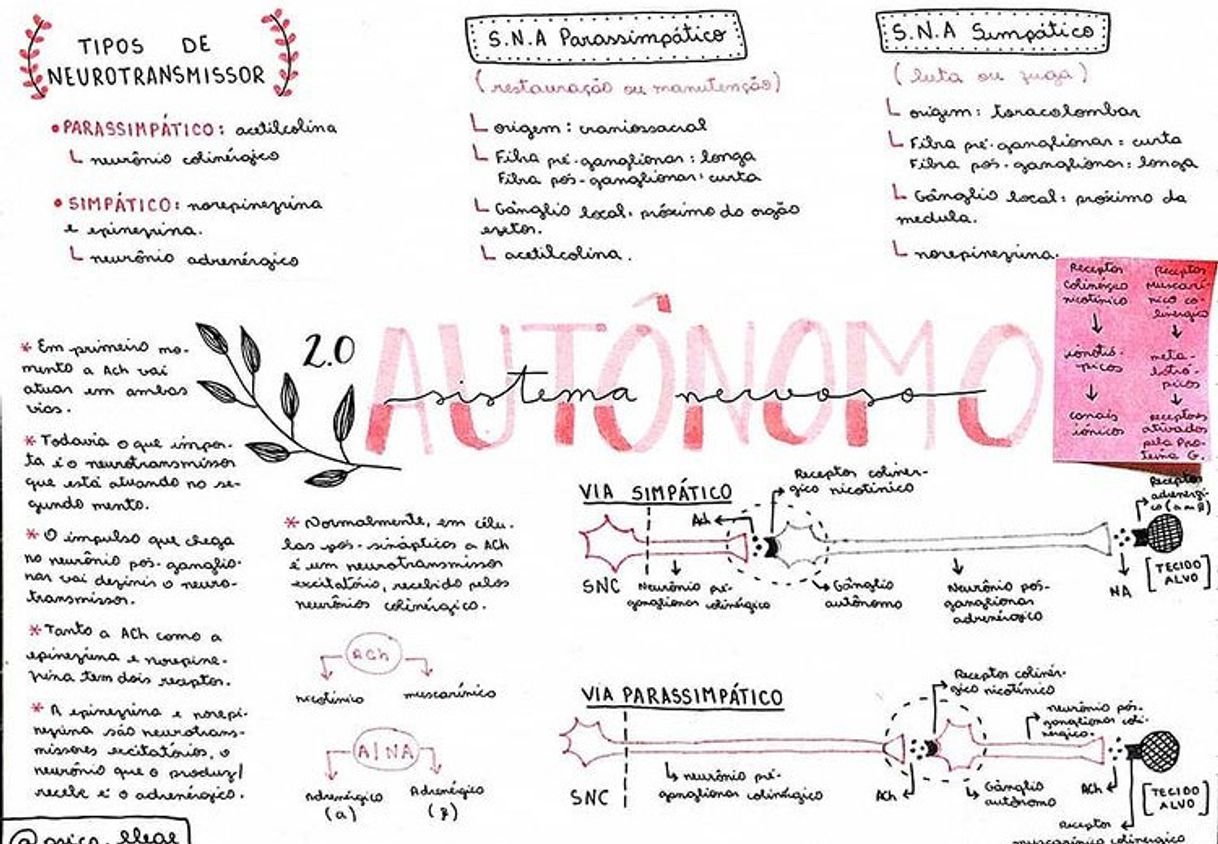 TIPOS DE
NEUROTRANSMISSOR
• PARASSIMPÁTICO: acetilcolina
neurônio colinérgico
• SIMPÁTICO: norepinefrina
e epinefrina.
neurônio adrenérgico
S.N.A Parassimpático
(restauração ou manutenção)
origem: craniossacral
Fibra pré-ganglionar: longa
Fibra pós-ganglionar: curta
Gânglio local: próximo do orgão
efetor.
acetilcolina.
S.N.A Simpático
(luta ou fuga)
origem: toracolombar
Fibra pré-ganglionar: curta
Fibra pós-ganglionar: longa
Gânglio local: próximo da
medula.
norepinefrina.
Receptor
Colinérgico
nicotínico
ionotró-
picos
canais
iônicos
Receptor
Muscarí-
nico co-
linérgico
meta-
botró-
picos
receptores
ativados
pela Pro-
teína G.
2.0
AUTÔNOMO
sistema nervoso
* Em primeiro mo-
mento a Ach vai
atuar em ambas
vias.
* Todavia o que impor-
ta é o neurotransmissor
que está atuando no se-
gundo mento.
* O impulso que chega
no neurônio pós-ganglio-
nar vai definir o neuro-
transmissor.
* Tanto a ACh como a
epinefrina e norepine-
frina tem dois receptor.
* A epinefrina e norepi-
nefrina são neurotrans-
missores excitatórios, o
neurônio que o produz/
recebe é o adrenérgico.
* Normalmente, em célu-
las pós-sinápticos a ACh
é um neurotransmissor
excitatório, recebido pelos
neurônios colinérgico.
ACh
nicotínico muscarínico
A/NA
Adrenérgico
(α)
Adrenérgico
(β)
VIA SIMPÁTICO
Ach
Receptor colinér-
gico nicotínico
Receptor
adrenérgi-
co (α ou β)
SNC
Neurônio pré-
ganglionar colinérgico
Gânglio
autônomo
Neurônio pós-
ganglionar
adrenérgico
NA
[TECIDO
ALVO]
VIA PARASSIMPÁTICO
Receptor colinér-
gico nicotínico
neurônio pós-
ganglionar coli-
nérgico.
SNC
neurônio pré-
ganglionar colinérgico
ACh
Gânglio
autônomo
ACh
[TECIDO
ALVO]
receptor
muscarínico colinérgico